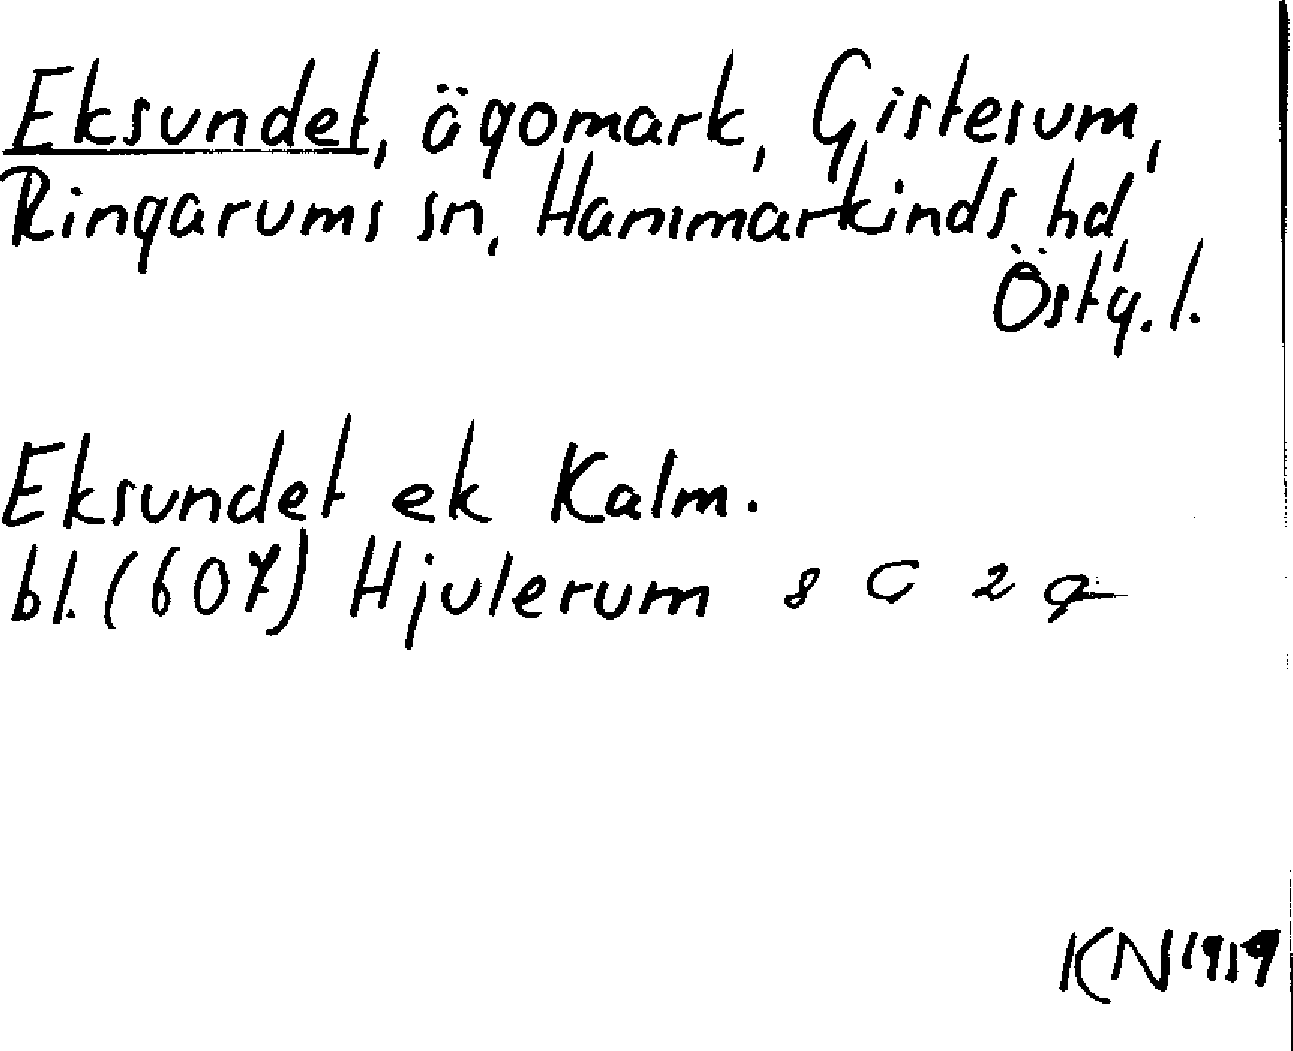 Eksundet, ägomark, Gisterum,
Ringarums sn, Hammarkinds hd,
Östg. l.
Eksundet ek Kalm.
bl. (607) Hjulerum 8 C 2 g
KN 1919